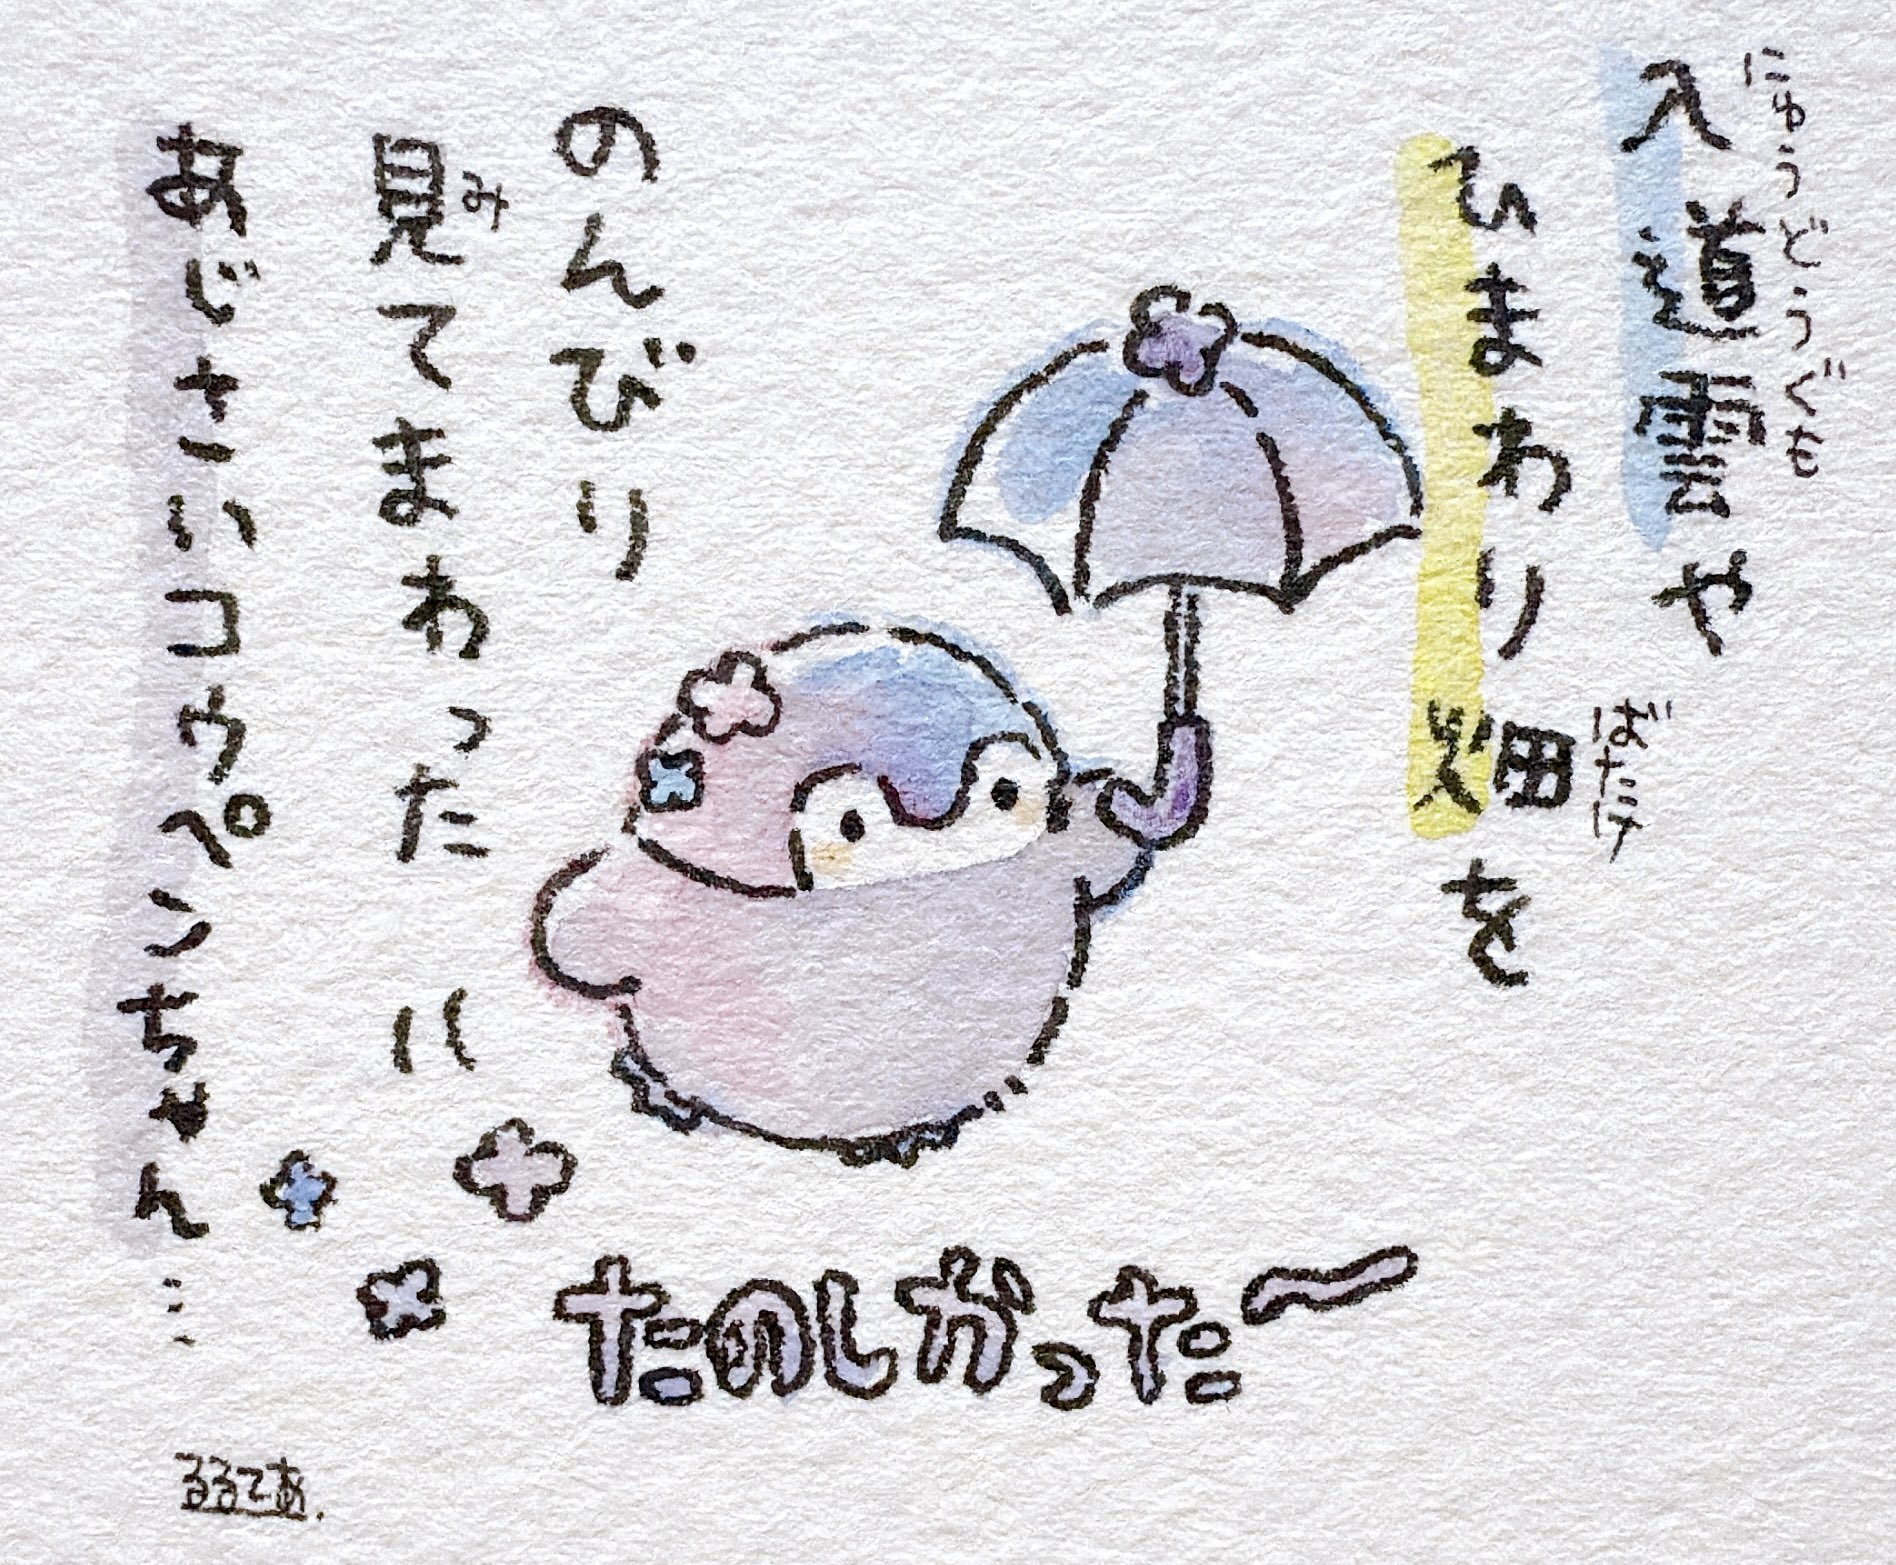 入道雲や
にゅうどうぐも
ひまわり畑を
ばたけ
のんびり
見てまわった
み
あじさいコウペンちゃん…
たのしかった〜
るるてあ.